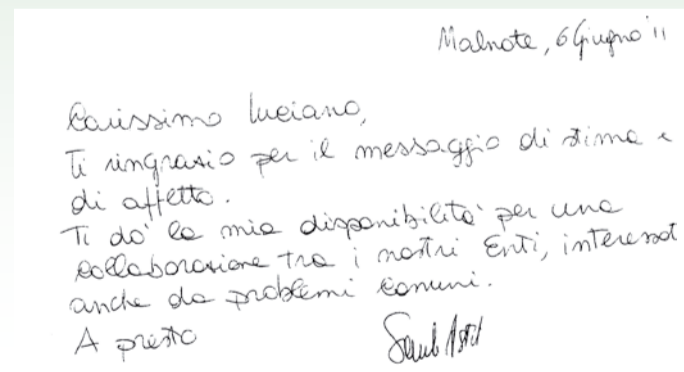 Malnate, 6 Giugno '11
Carissimo Luciano,
Ti ringrazio per il messaggio di stima e
di affetto.
Ti do' la mia disponibilita' per una
collaborazione tra i nostri Enti, interessat
anche da problemi comuni.
A presto